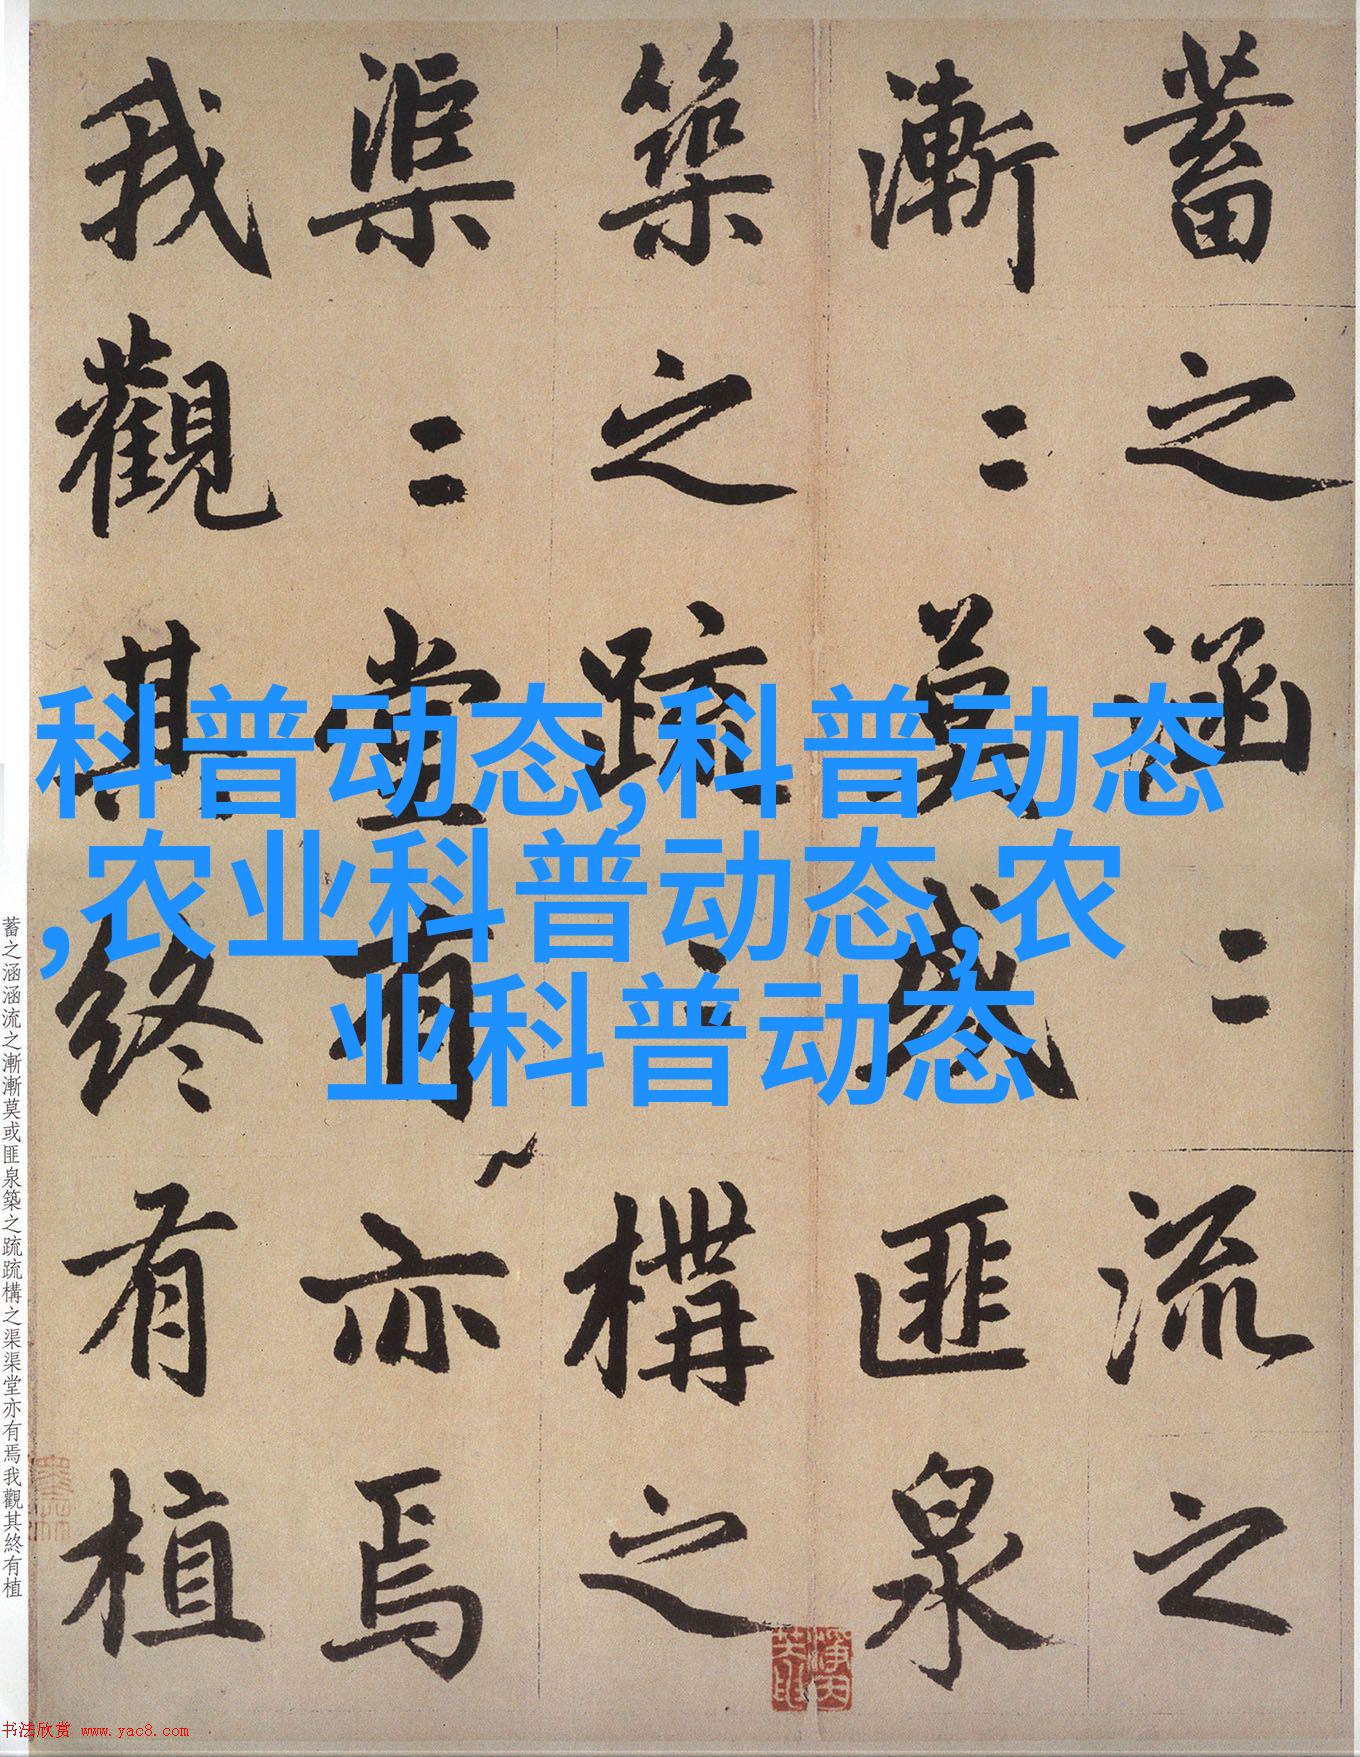 蓄之涵〻流之
漸〻莫或匪泉
築之疏〻構之
渠〻堂有亦焉
我觀其終有植
科普动态,科普动态
,农业科普动态,农
业科普动态
蓄之涵涵流之漸漸莫或匪泉築之疏疏構之渠渠堂亦有焉我觀其終有植
书法欣赏 www.yac8.com